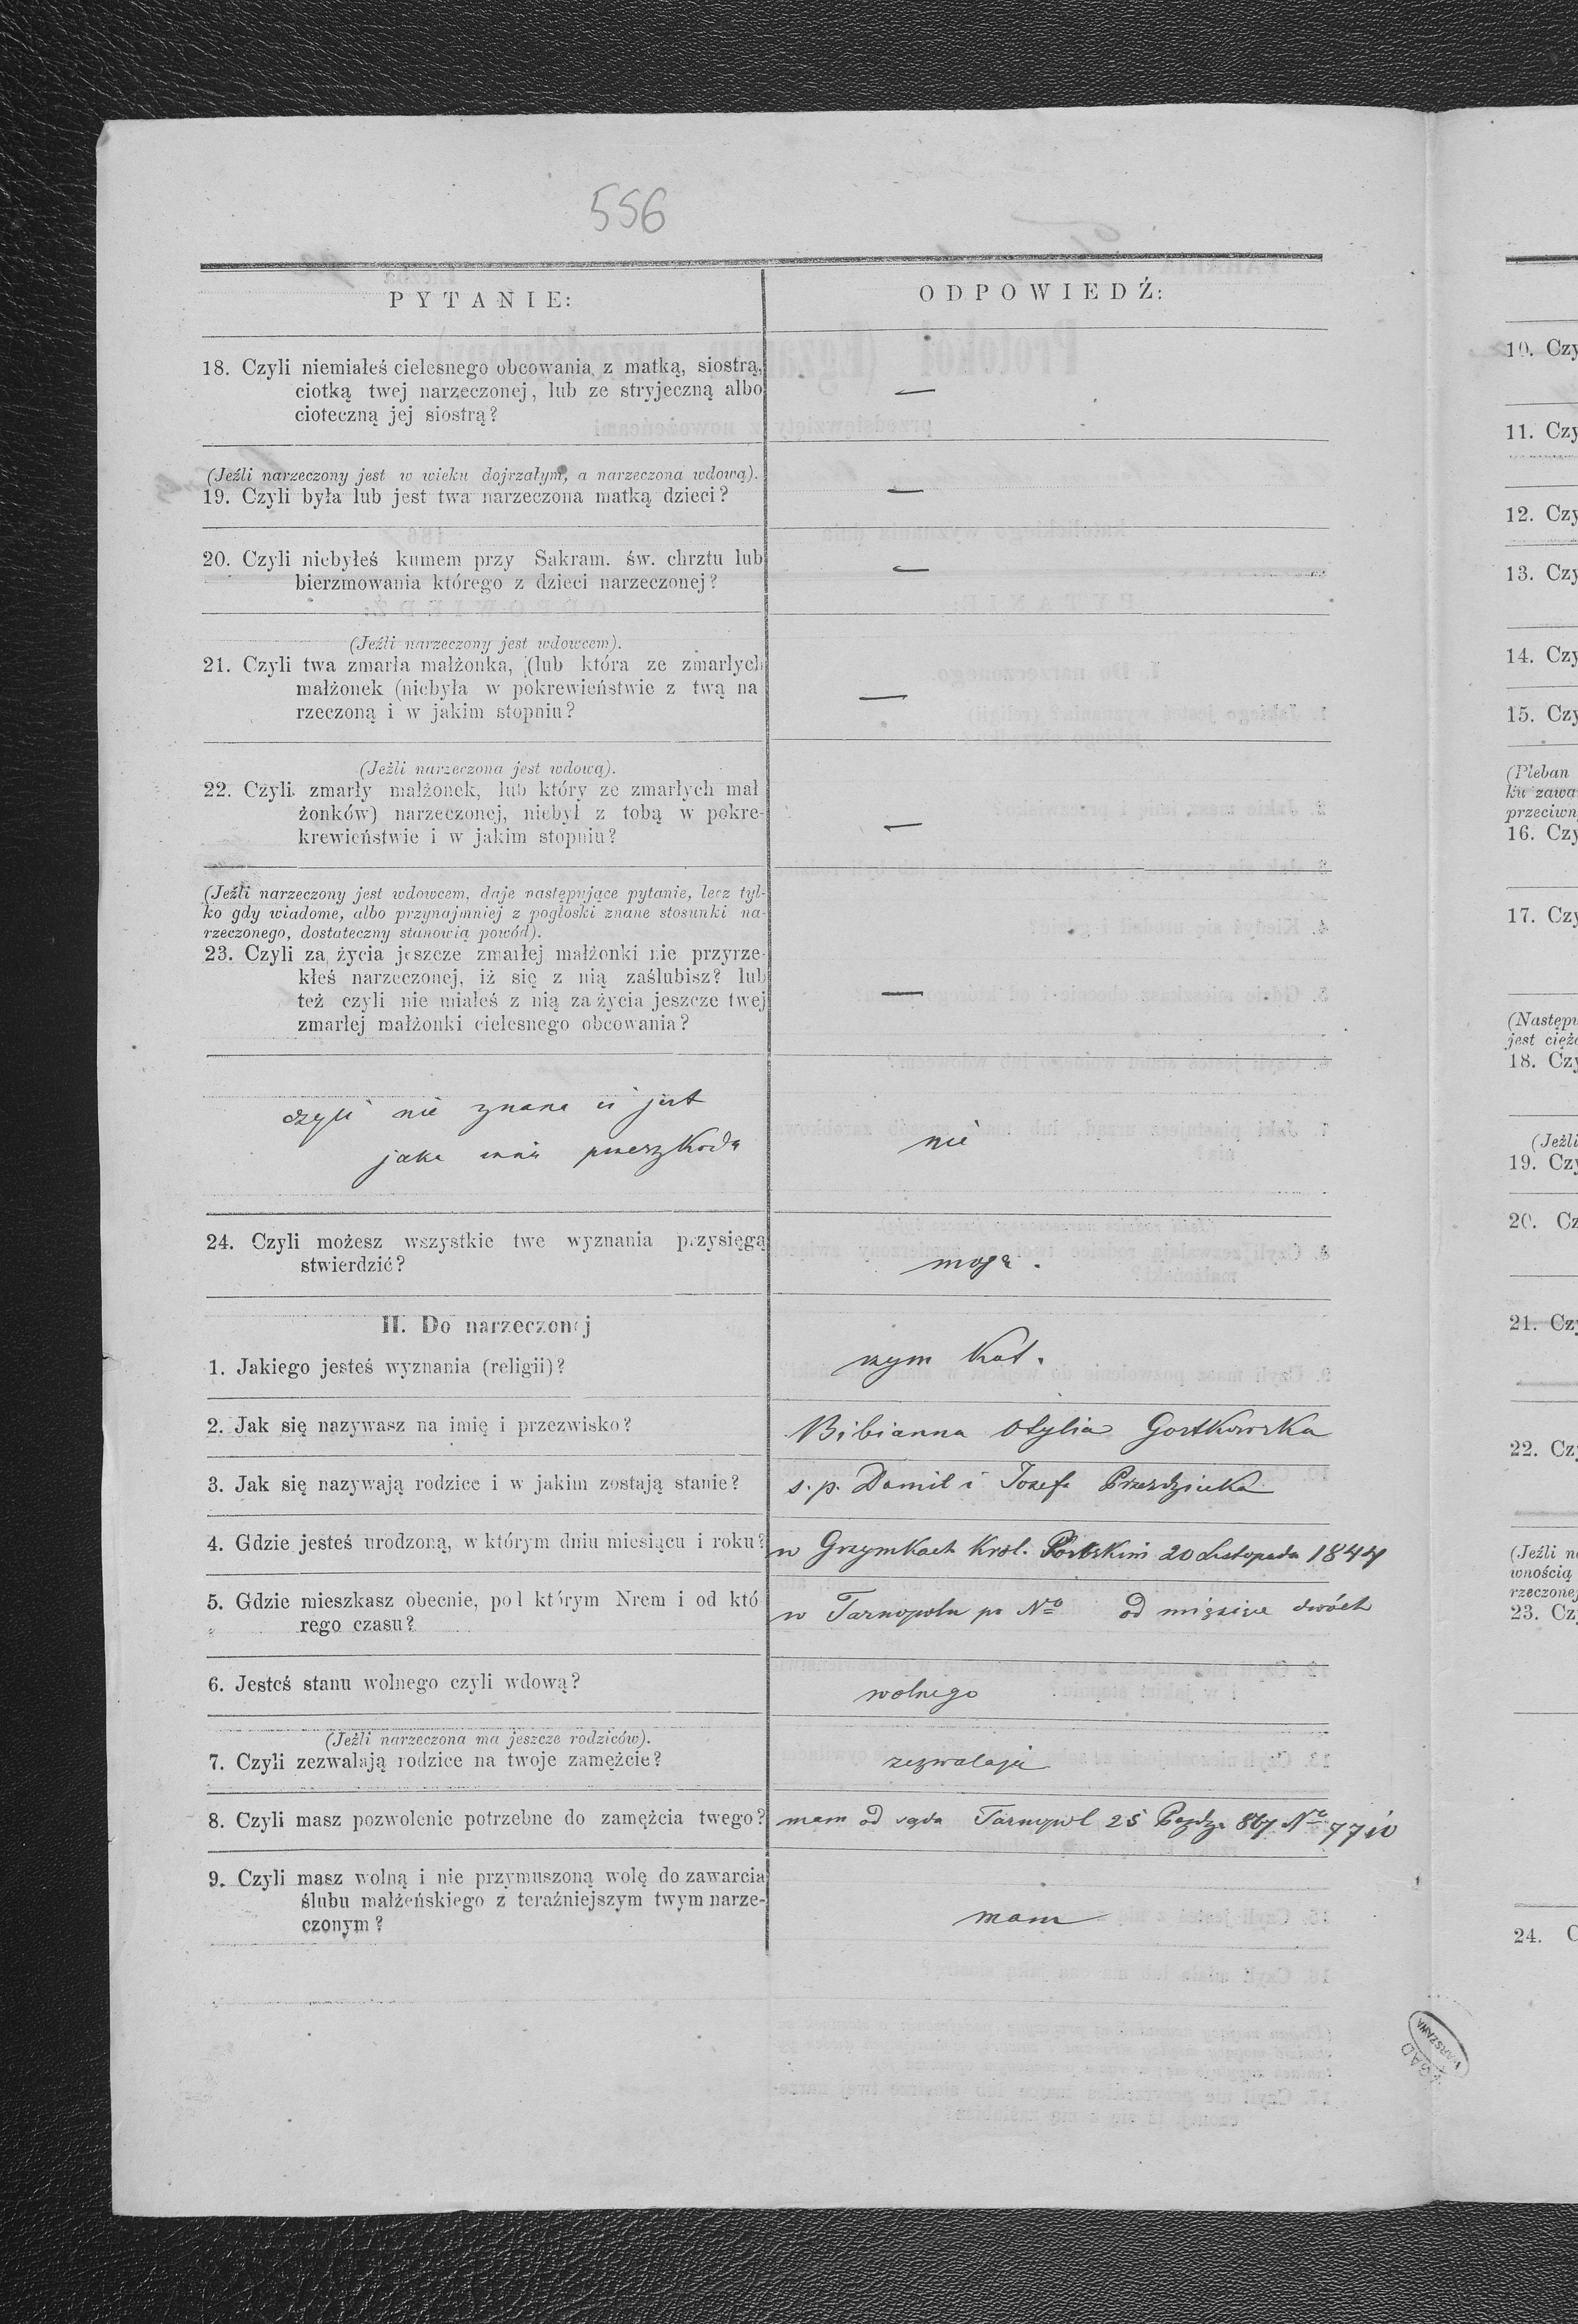 556
PYTANIE:
ODPOWIEDŹ:
18. Czyli niemiałeś cielesnego obcowania z matką, siostrą,
ciotką twej narzeczonej, lub ze stryjeczną albo
cioteczną jej siostrą?
—
(Jeźli narzeczony jest w wieku dojrzałym, a narzeczona wdową).
19. Czyli była lub jest twa narzeczona matką dzieci?
—
20. Czyli niebyłeś kumem przy Sakram. św. chrztu lub
bierzmowania którego z dzieci narzeczonej?
—
(Jeźli narzeczony jest wdowcem).
21. Czyli twa zmarła małżonka, (lub która ze zmarłych
małżonek (niebyła w pokrewieństwie z twą na
rzeczoną i w jakim stopniu?
—
(Jeźli narzeczona jest wdową).
22. Czyli zmarły małżonek, lub który ze zmarłych mał
żonków) narzeczonej, niebył z tobą w pokre-
krewieństwie i w jakim stopniu?
—
(Jeźli narzeczony jest wdowcem, daje następujące pytanie, lecz tyl-
ko gdy wiadome, albo przynajmniej z pogłoski znane stosunki na-
rzeczonego, dostateczny stanowią powód).
23. Czyli za życia jeszcze zmarłej małżonki nie przyrze-
kłeś narzeczonej, iż się z nią zaślubisz? lub
też czyli nie miałeś z nią za życia jeszcze twej
zmarłej małżonki cielesnego obcowania?
—
czyli nie znana ci jest
jaka inna przeszkoda
nie
24. Czyli możesz wszystkie twe wyznania przysięgą
stwierdzić?
mogę.
II. Do narzeczonej
1. Jakiego jesteś wyznania (religii)?
rzym kat.
2. Jak się nazywasz na imię i przezwisko?
Bibianna Otylia Gostkowska
3. Jak się nazywają rodzice i w jakim zostają stanie?
s. p. Damil i Jozefa Przezdziecka
4. Gdzie jesteś urodzoną, w którym dniu miesiącu i roku?
w Grzymkach Krol. Polskim 20 Listopada 1844
5. Gdzie mieszkasz obecnie, pod którym Nrem i od któ
rego czasu?
w Tarnopolu po No od miesięcy dwóch
6. Jesteś stanu wolnego czyli wdową?
wolnego
(Jeźli narzeczona ma jeszcze rodziców).
7. Czyli zezwalają rodzice na twoje zamężcie?
zezwalają
8. Czyli masz pozwolenie potrzebne do zamężcia twego?
mam od sądu Tarnopol 25 Paźdz. 867 No
9. Czyli masz wolną i nie przymuszoną wolę do zawarcia
ślubu małżeńskiego z teraźniejszym twym narze-
czonym?
mam
10. Czy
11. Czy
12. Czy
13. Czy
14. Czy
15. Czy
(Pleban
ku zawa
przeciwn
16. Czy
17. Czy
(Następu
jest cięż
18. Czy
(Jeźli
19. Czy
20. Cz
21. Czy
22. Cz
(Jeźli n
wnością
rzeczone
23. Cz
24. C
AGAD
WARSZAWA